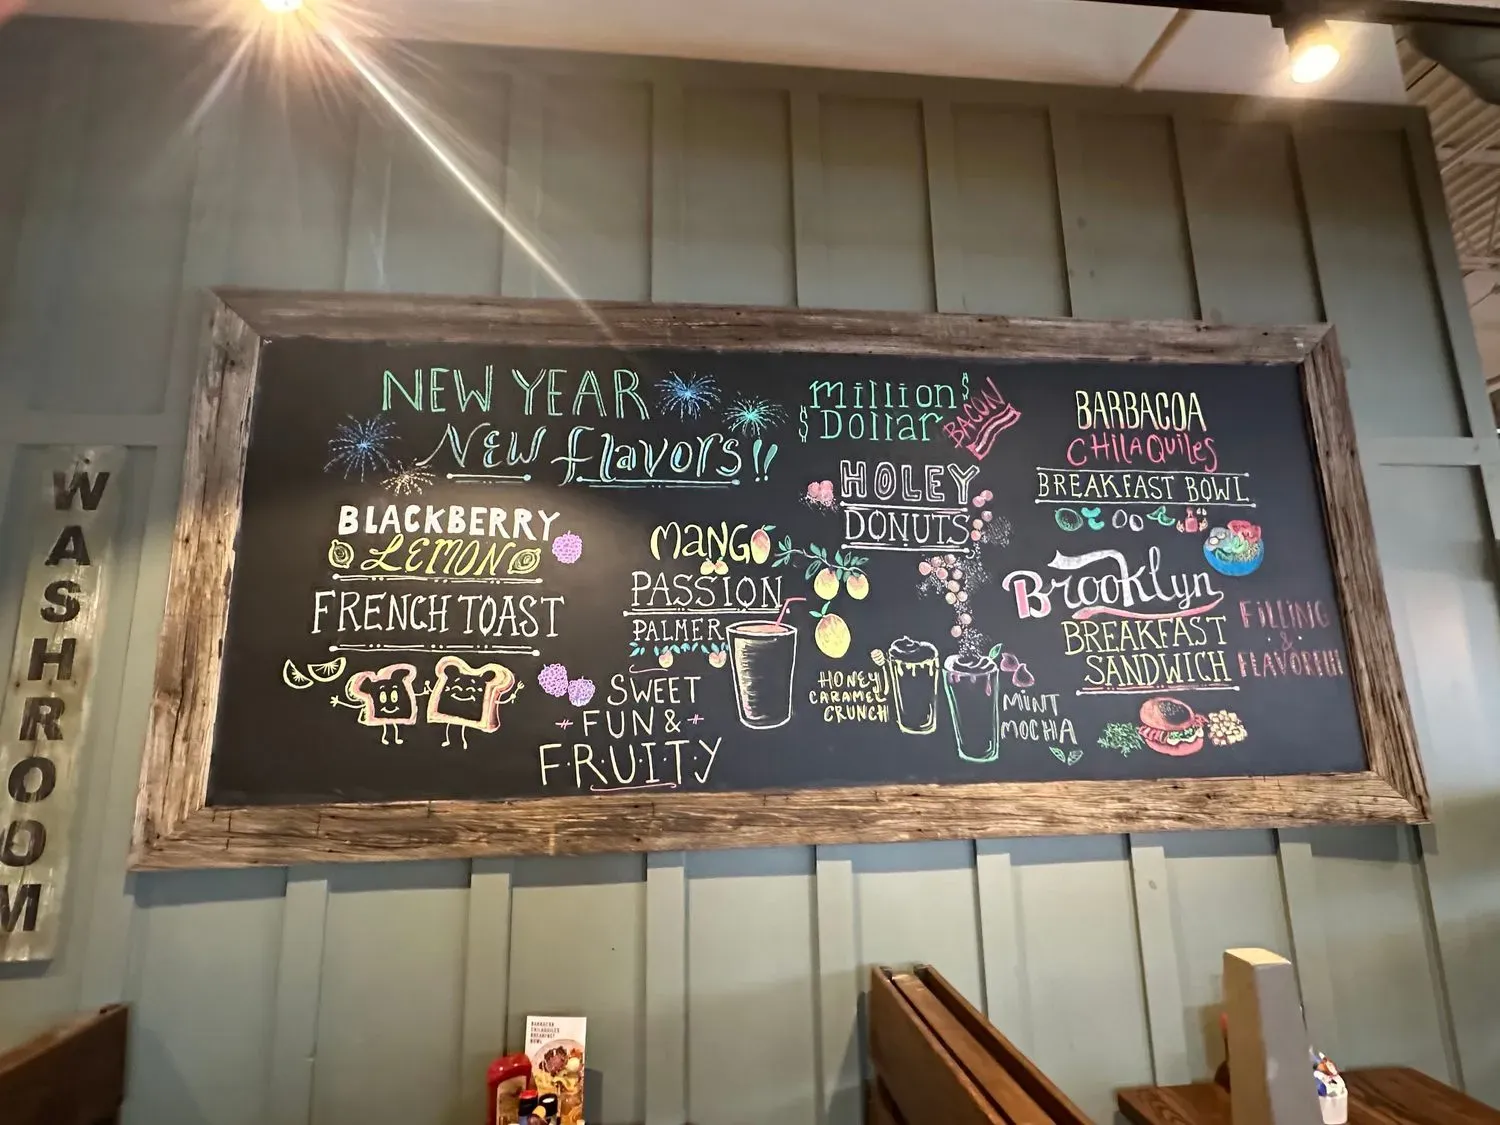 WASHROOM
NEW YEAR
NEW flavors!!
BLACKBERRY
LEMON
FRENCH TOAST
MANGO
PASSION
PALMER
SWEET
FUN &
FRUITY
Million $
$ Dollar
BACON
HOLEY
DONUTS
HONEY
CARAMEL
CRUNCH
MiNT
MOCHA
BARBACOA
CHilAQuilES
BREAKFAST BOWL
Brooklyn
BREAKFAST
SANDWICH
FilliNG
&
FLAVORFUL
BARBACOA
CHILAQUILES
BREAKFAST
BOWL